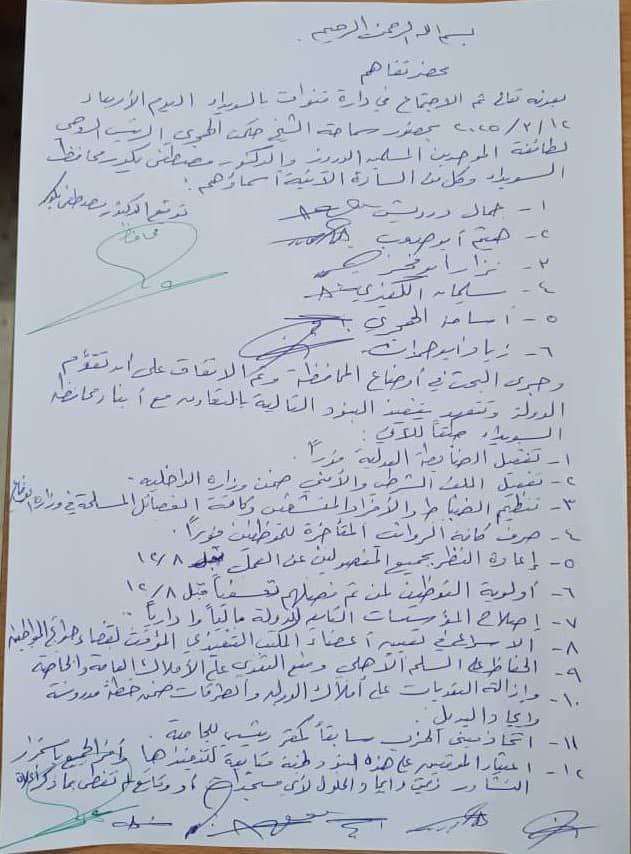 بسم الله الرحمن الرحيم
محضر تفاهم
بعونه تعالى تم الاجتماع في دارة قنوات بالسويداء اليوم الأربعاء
١٢ / ٣ / ٢٠٢٥ بحضور سماحة الشيخ حكمت الهجري الرئيس الروحي
لطائفة الموحدين المسلمين الدروز والدكتور مصطفى بكور محافظ
السويداء وكل من السادة الآتية أسماؤهم:
توقيع الدكتور مصطفى بكور
١- جمال درويش
محافظ
٢- هيثم أبو صعب
٣- نزار أبو فخر
٤- سليمان الكفيري
٥- أسامة الهجري
٦- زياد أبو حمدان
وجرى البحث في أوضاع المحافظة وتم الاتفاق على أن تقوم
الدولة وتتعهد بتنفيذ البنود التالية بالتعاون مع أبناء محافظة
السويداء وفقاً للآتي:
١- تفعيل الضابطة العدلية فوراً.
٢- تفعيل الملف الشرطي والأمني ضمن وزارة الداخلية.
٣- تنظيم الضباط والأفراد المنشقين وكافة الفصائل المسلحة في وزارة الدفاع
٤- صرف كافة الرواتب المتأخرة للموظفين فوراً.
٥- إعادة النظر بجميع المفصولين عن العمل قبل ١٢/٨
٦- أولوية التوظيف لمن تم فصلهم تعسفياً قبل ١٢/٨
٧- إصلاح المؤسسات التابعة للدولة مالياً وإدارياً.
٨- الاسراع في تعيين أعضاء المكتب التنفيذي المؤقت لقضاء حوائج المواطنين
٩- الحفاظ على السلم الأهلي ومنع التعدي على الأملاك العامة والخاصة
١٠- وإزالة التعديات على أملاك الدولة والطرقات ضمن خطة مدروسة
وإيجاد البديل.
١١- اتخاذ مبنى الحزب سابقاً كمقر رئيسي للجامعة.
١٢- اعتبار الموقعين على هذه البنود لجنة متابعة لتنفيذها وأقر الجميع باستمرار
التشاور وإيجاد الحلول لأي مستجدات أو وقائع